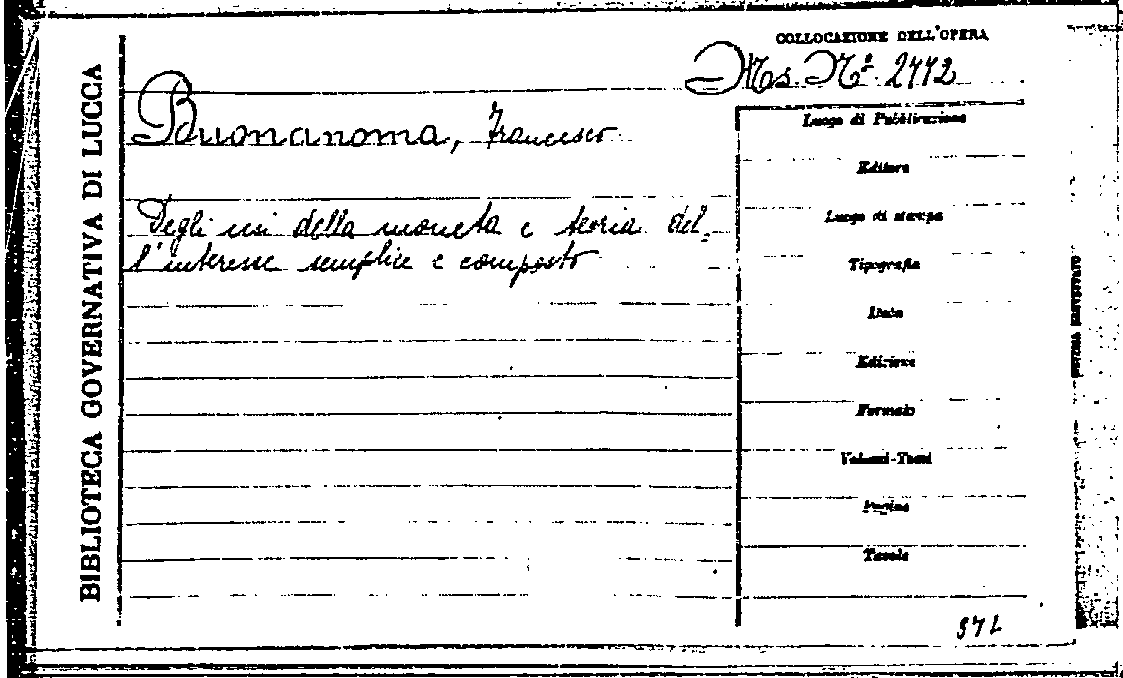 BIBLIOTECA GOVERNATIVA DI LUCCA
COLLOCAZIONE DELL'OPERA
Ms. Nº. 2772
Buonanoma, Francesco
Degli usi della moneta e teoria del-
l'interesse semplice e composto
Luogo di Pubblicazione
Editore
Luogo di stampa
Tipografia
Data
Edizione
Formato
Volumi-Tomi
Pagine
Tavole